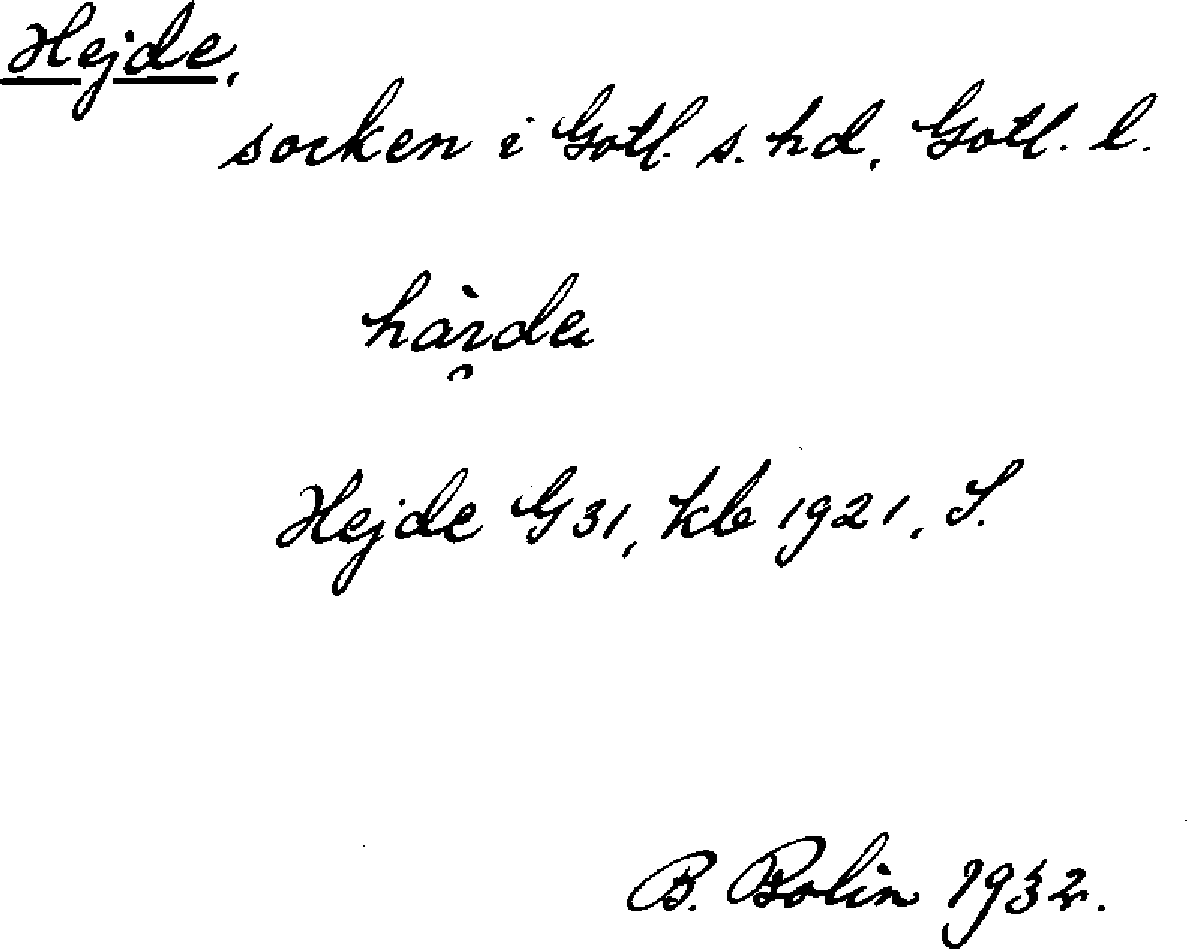 Hejde,
socken i Gotl. s. hd, Gotl. l.
Hejde G 31, kb 1921, S.
B. Bolin 1932.